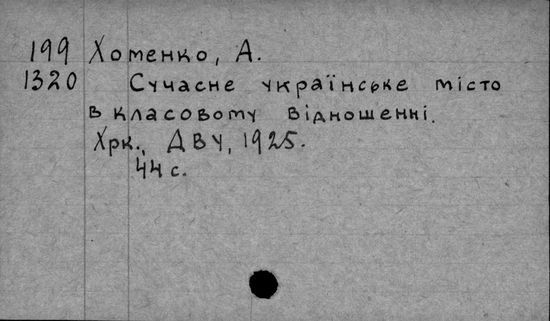 199 Хоменко, А.
1320 Сучасне українське місто
в класовому відношенні.
Хрк., ДВУ, 1925.
44 с.